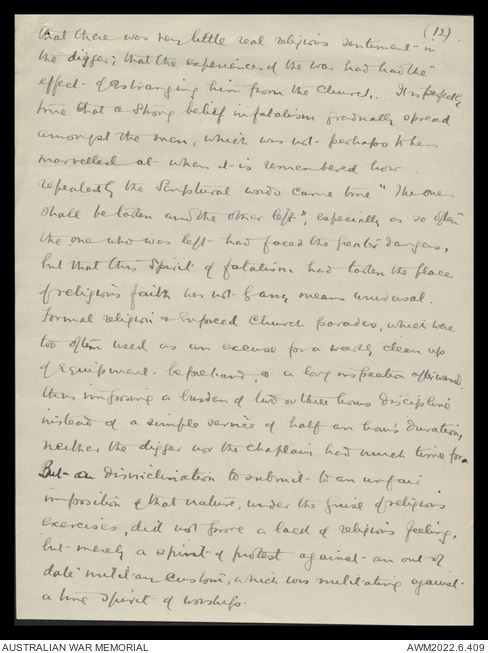 (12).
that there was very little real religious sentiment in
the digger; that the experiences of the war had had the
effect of estranging him from the Church... It is perfectly
true that a strong belief in fatalism gradually spread
amongst the men, which was not perhaps to be
marvelled at when it is remembered how
repeatedly the Scriptural words came true "The one
shall be taken and the other left", especially as so often
the one who was left had faced the greater dangers,
but that this spirit of fatalism had taken the place
of religious faith was not by any means universal.
Formal religion & enforced Church parades, which were
too often used as an excuse for a weekly clean up
of equipment beforehand, & a long inspection afterward,
thus imposing a burden of two or three hours discipline
instead of a simple service of half an hour's duration,
neither the digger nor the chaplain had much time for.
But a disinclination to submit to an unfair
imposition of that nature, under the guise of religious
exercises, did not prove a lack of religious feeling,
but merely a spirit of protest against an out of
date military custom, which was militating against
a true spirit of worship.
AUSTRALIAN WAR MEMORIAL
AWM2022.6.409